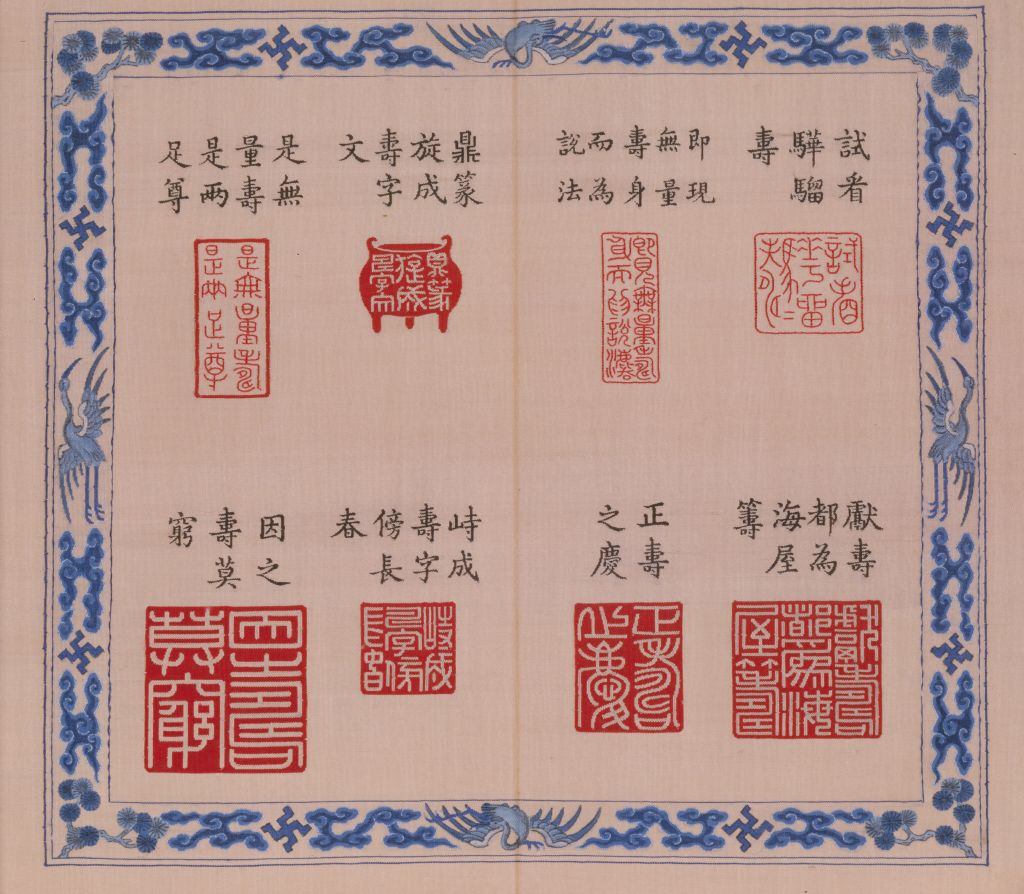 試看
驊騮
壽
即現
無量
壽身
而為
說法
即現無量壽
身而為說法
鼎篆
旋成
壽字
文
鼎篆
旋成
壽字文
是無
量壽
是兩
足尊
是無量壽
是兩足尊
獻壽
都為
海屋
籌
獻壽
都為海
屋籌
正壽
之慶
正壽
之慶
峙成
壽字
傍長
春
峙成
壽字傍
長春
因之
壽莫
窮
因之壽
莫窮